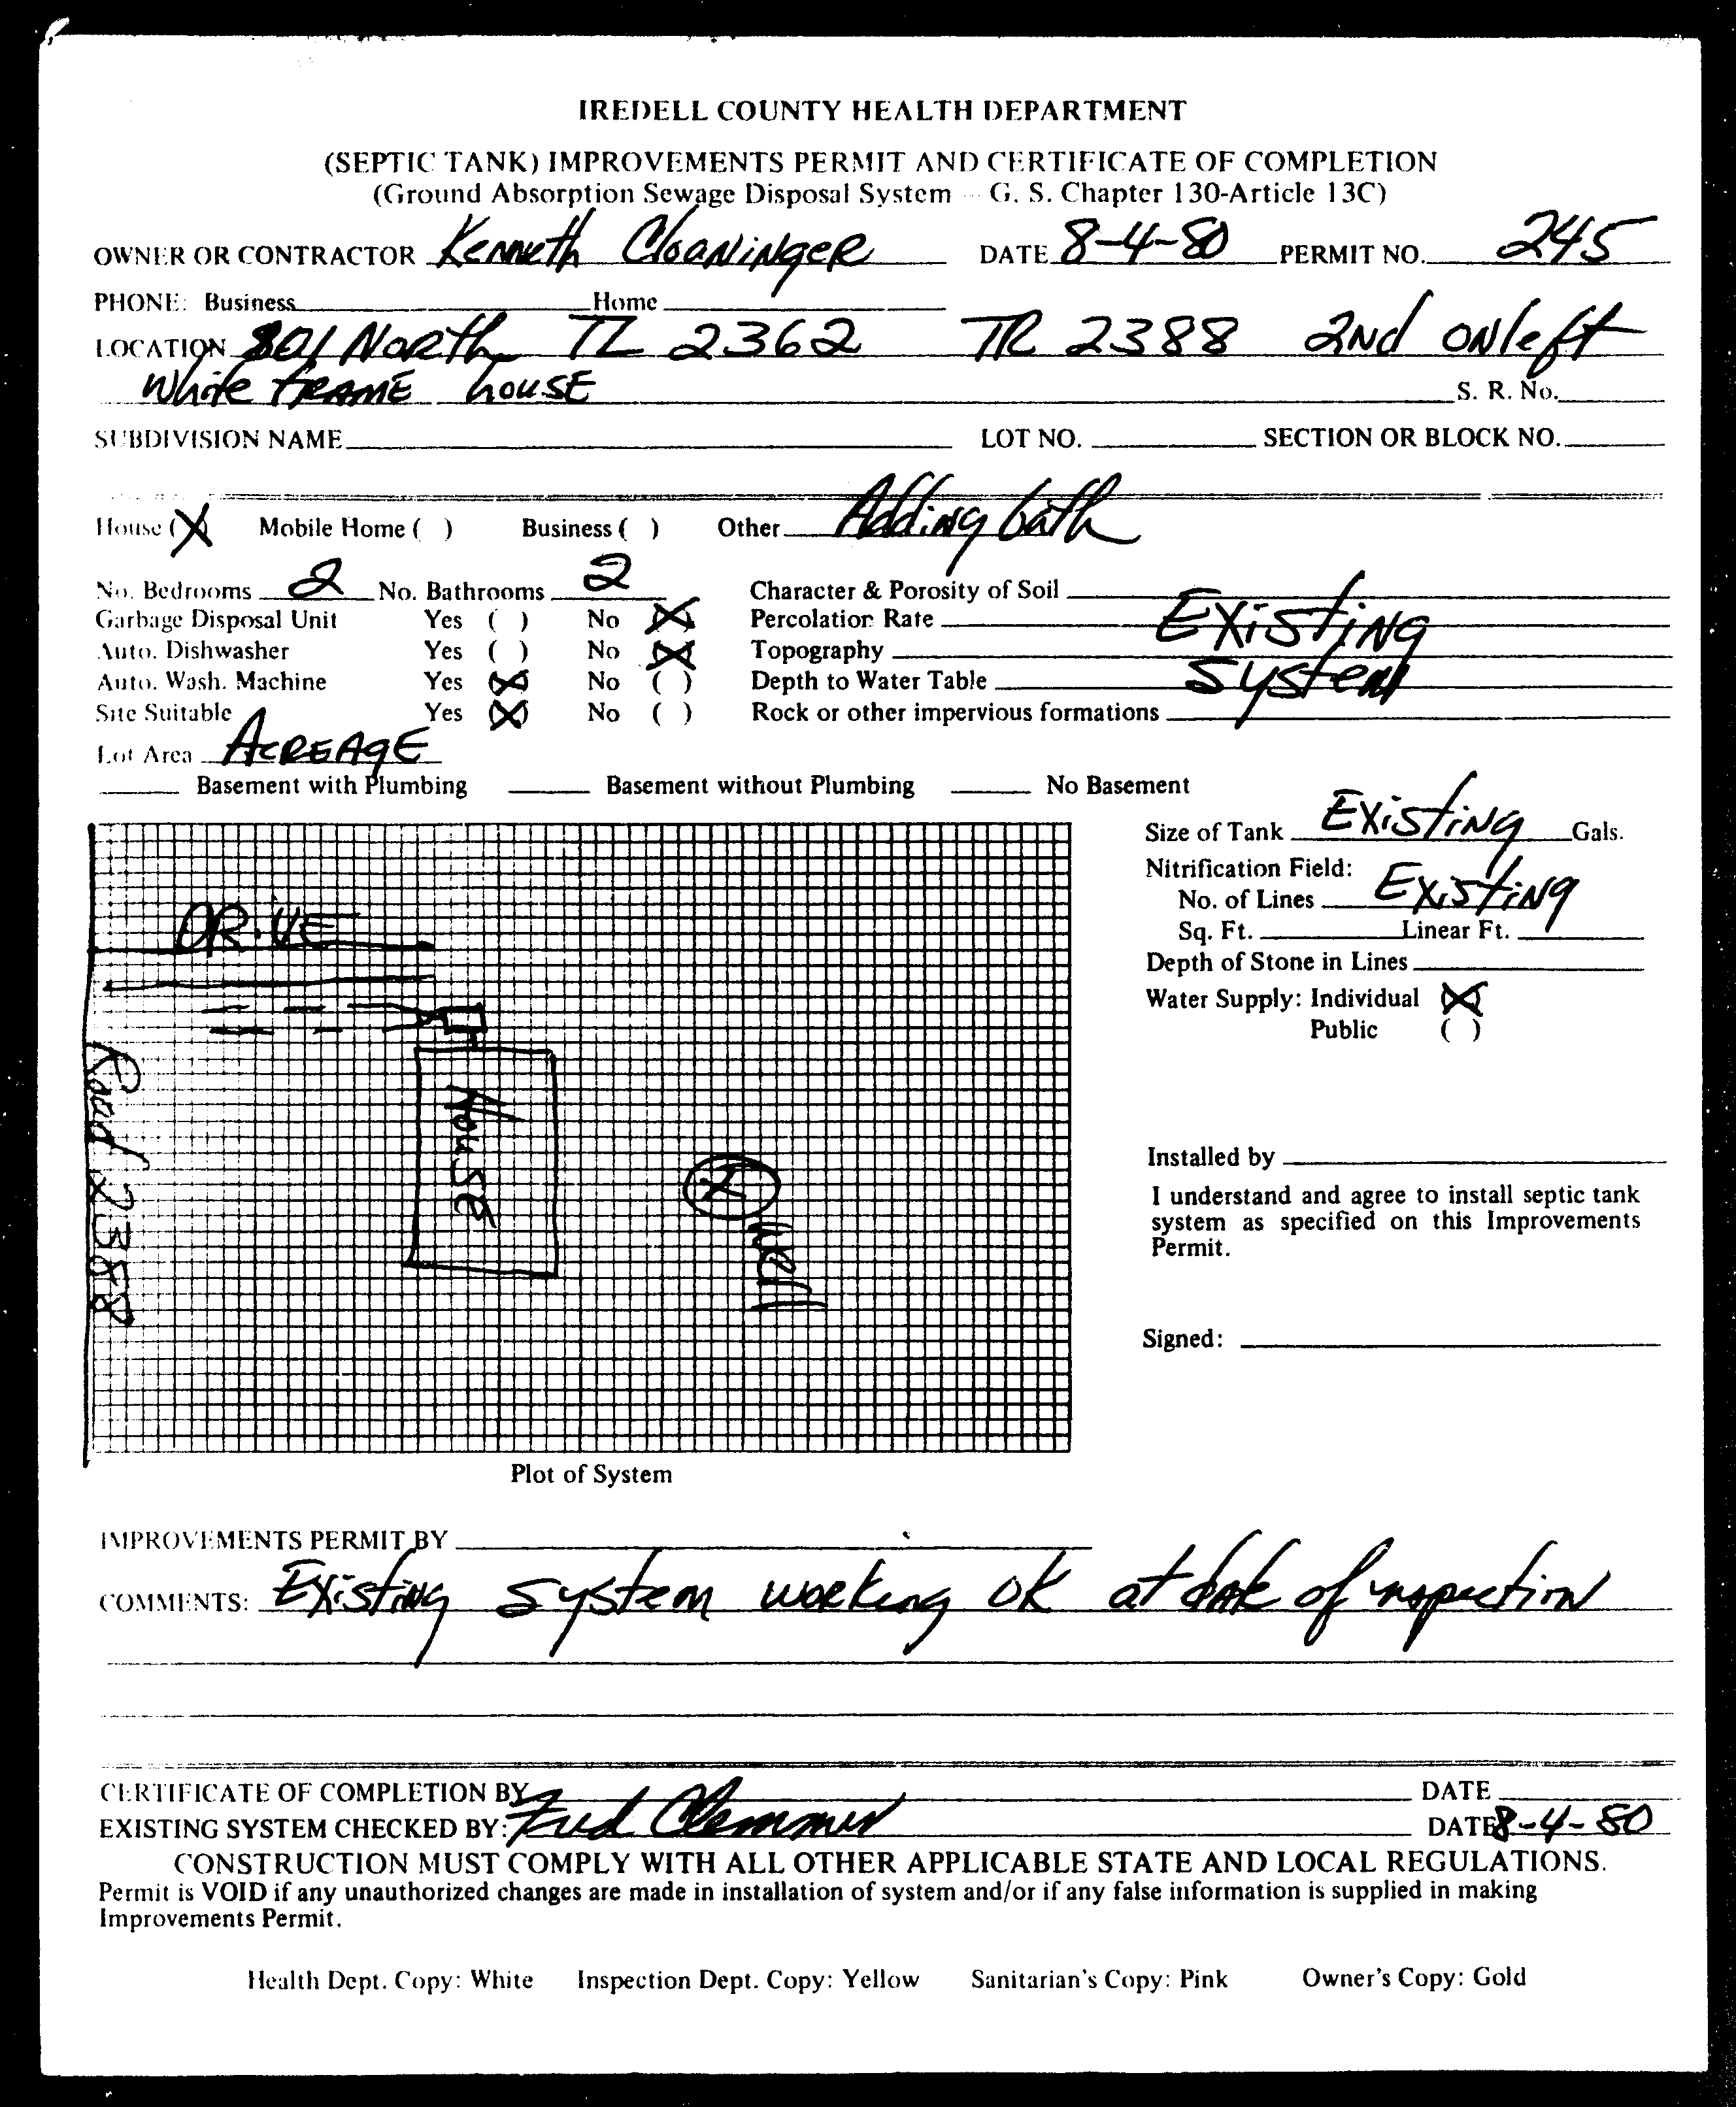 IREDELL COUNTY HEALTH DEPARTMENT
(SEPTIC TANK) IMPROVEMENTS PERMIT AND CERTIFICATE OF COMPLETION
(Ground Absorption Sewage Disposal System — G. S. Chapter 130-Article 13C)
OWNER OR CONTRACTOR Kenneth Cloaninger DATE 8-4-80 PERMIT NO. 245
PHONE: Business Home
LOCATION 801 North TL 2362 TR 2388 2nd on left
White frame house S. R. No.
SUBDIVISION NAME LOT NO. SECTION OR BLOCK NO.
House (X) Mobile Home ( ) Business ( ) Other Adding bath
No. Bedrooms 2 No. Bathrooms 2 Character & Porosity of Soil
Garbage Disposal Unit Yes ( ) No (X) Percolation Rate Existing
Auto. Dishwasher Yes ( ) No (X) Topography
Auto. Wash. Machine Yes (X) No ( ) Depth to Water Table System
Site Suitable Yes (X) No ( ) Rock or other impervious formations
Lot Area Acreage
Basement with Plumbing Basement without Plumbing No Basement
Size of Tank Existing Gals.
Nitrification Field:
No. of Lines Existing
Sq. Ft. Linear Ft.
Depth of Stone in Lines
Water Supply: Individual (X)
Public ( )
DRIVE
Road 2388
House
Well
Installed by
I understand and agree to install septic tank
system as specified on this Improvements
Permit.
Signed:
Plot of System
IMPROVEMENTS PERMIT BY
COMMENTS: Existing system working OK at date of inspection
CERTIFICATE OF COMPLETION BY DATE
EXISTING SYSTEM CHECKED BY: Fred Clemmer DATE 8-4-80
CONSTRUCTION MUST COMPLY WITH ALL OTHER APPLICABLE STATE AND LOCAL REGULATIONS.
Permit is VOID if any unauthorized changes are made in installation of system and/or if any false information is supplied in making
Improvements Permit.
Health Dept. Copy: White Inspection Dept. Copy: Yellow Sanitarian's Copy: Pink Owner's Copy: Gold